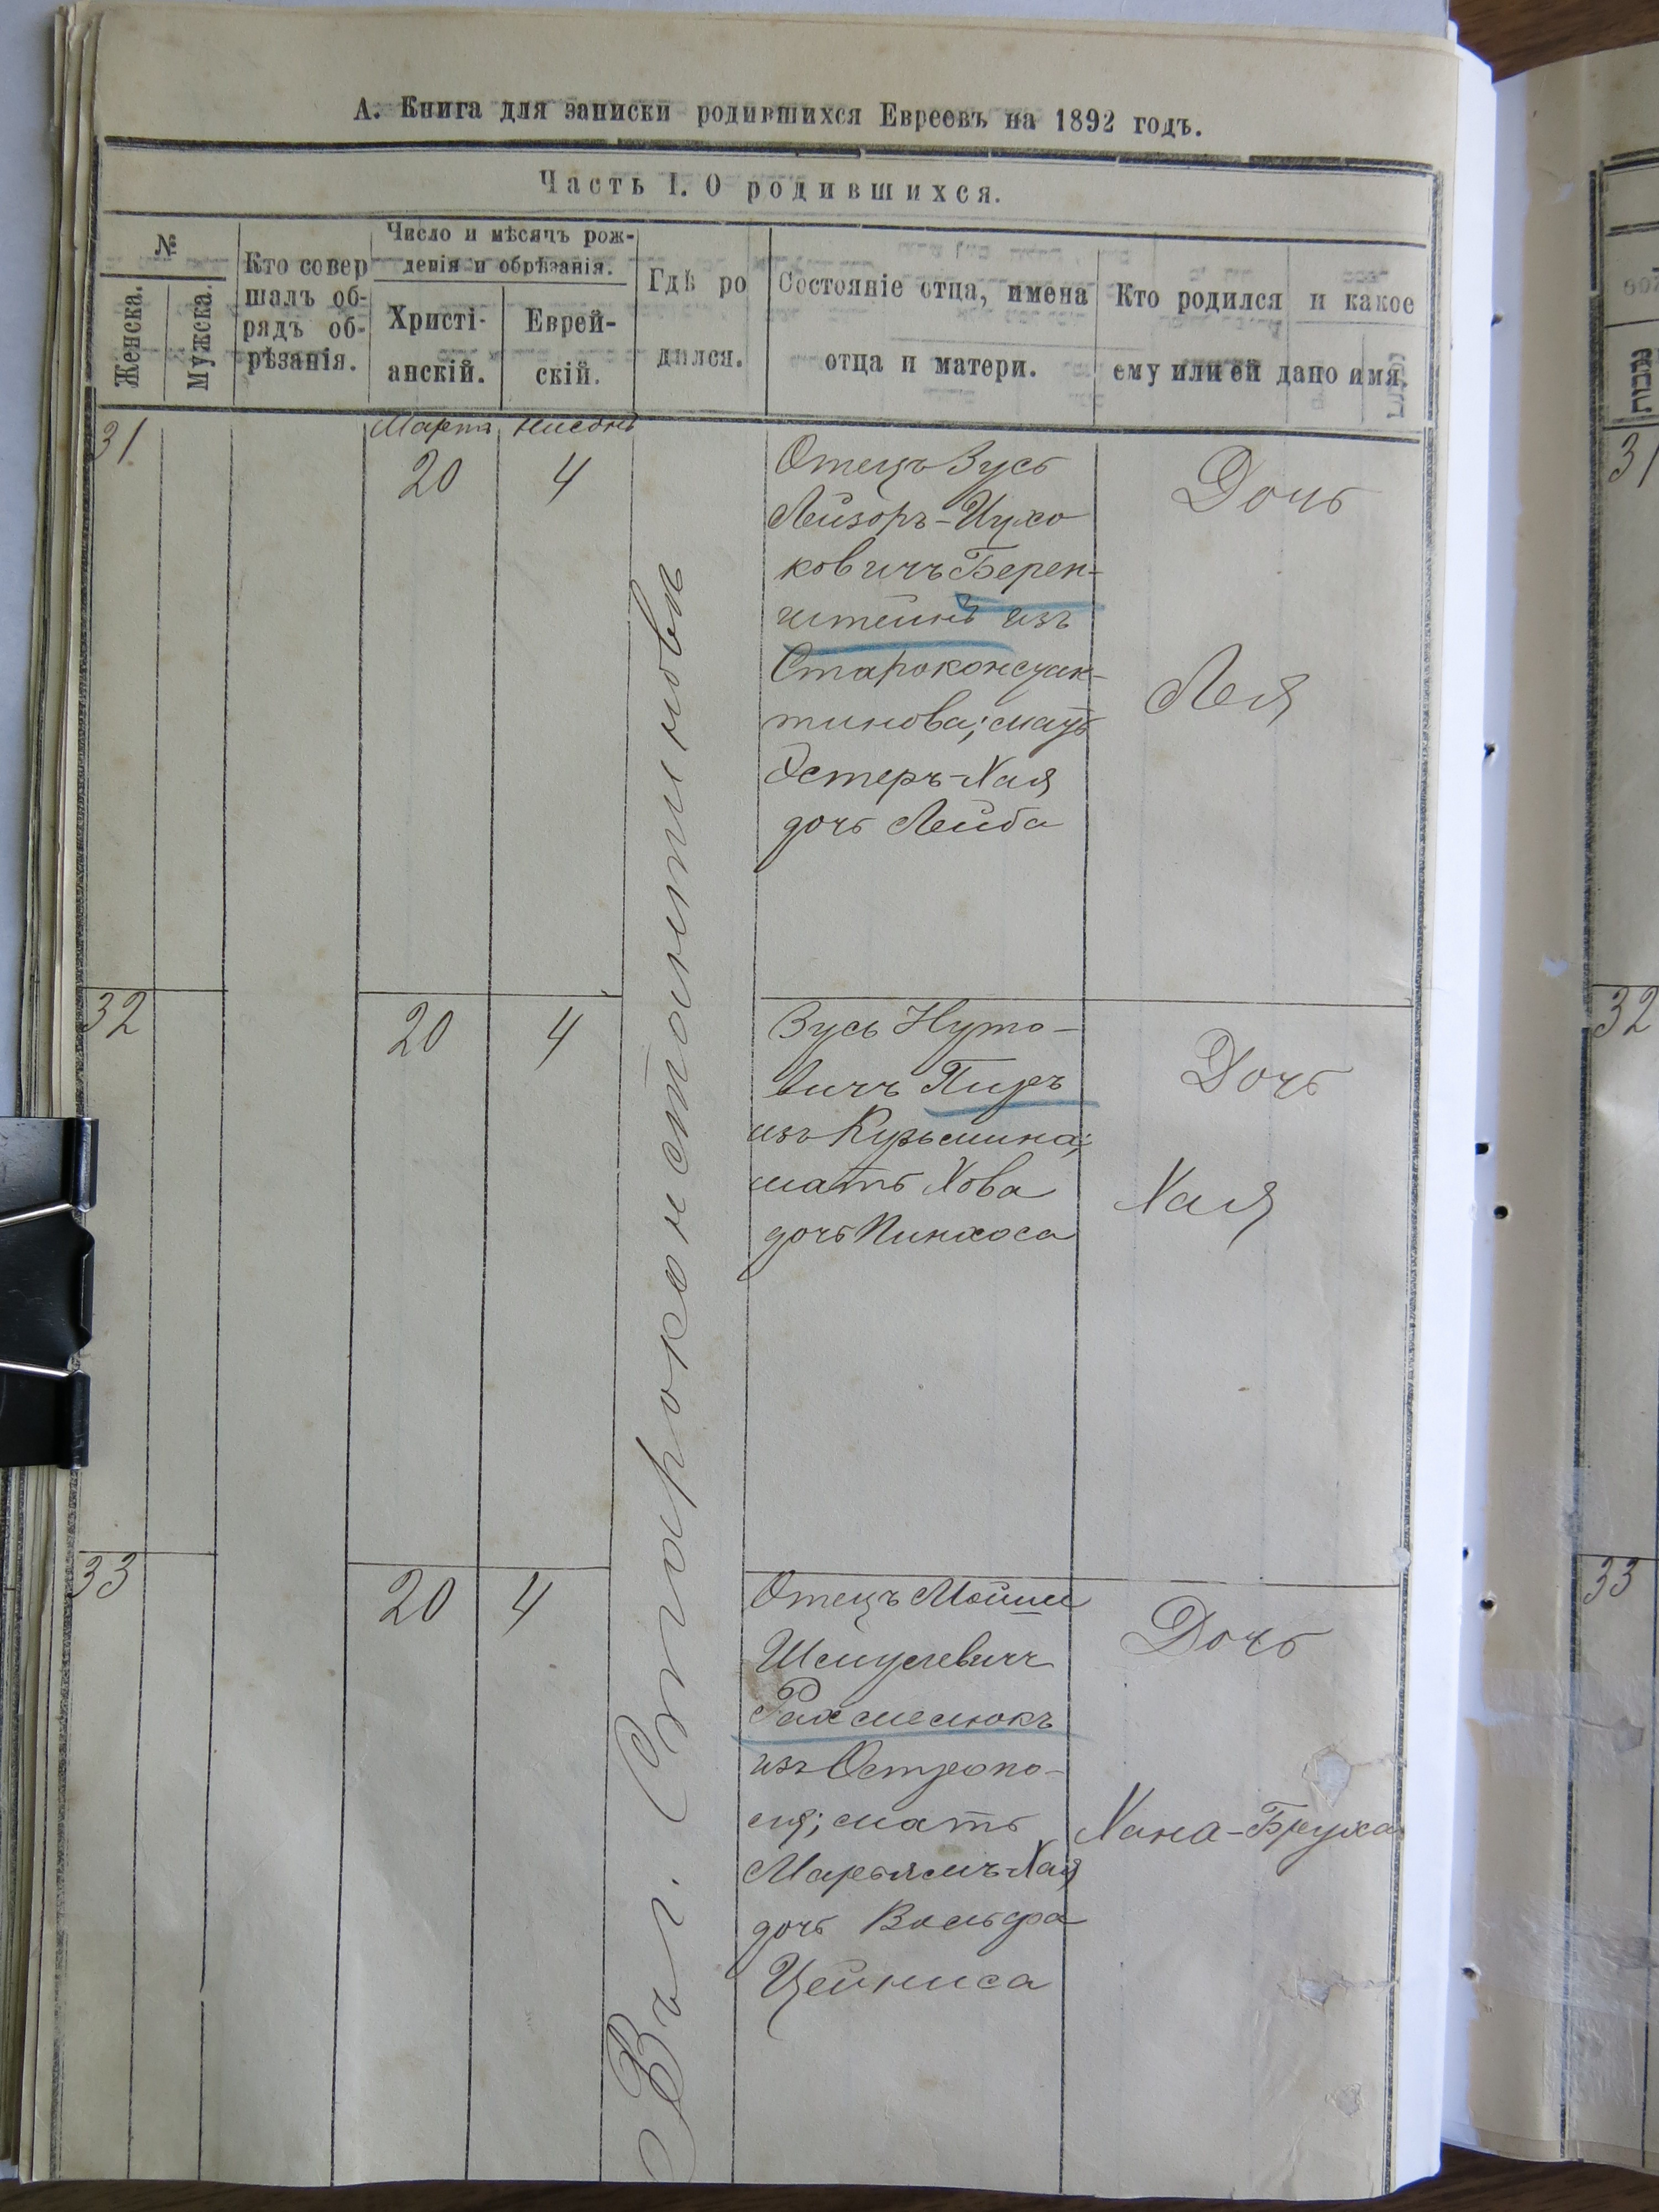 А. Книга для записки родившихся Евреевъ на 1892 годъ.
Часть I. О родившихся.
№
Женска.
Мужска.
Кто совер
шалъ об-
рядъ об-
рѣзанія.
Число и мѣсяцъ рож-
денія и обрѣзанія.
Христі-
анскій.
Еврей-
скій.
Гдѣ ро
дился.
Состояніе отца, имена
отца и матери.
Кто родился и какое
ему или ей дано имя.
31
Марта
Нисонъ
20
4
Въ г. Староконстантиновѣ
Отецъ Зусь
Лейзоръ-Ицхо
ковичъ Берен-
штейнъ изъ
Староконстан-
тинова; мать
Эстеръ-Хая
дочь Лейба
Дочь
Лея
32
20
4
Зусь Нуто-
вичъ Пиръ
изъ Кузьмина;
мать Хова
дочь Пинхоса
Дочь
Хая
33
20
4
Отецъ Мойше
Шмулевичъ
изъ Остропо-
ля; мать
Марьямъ-Хая
дочь Вольфа
Цейниса
Дочь
Хана-Бруха
31
32
33